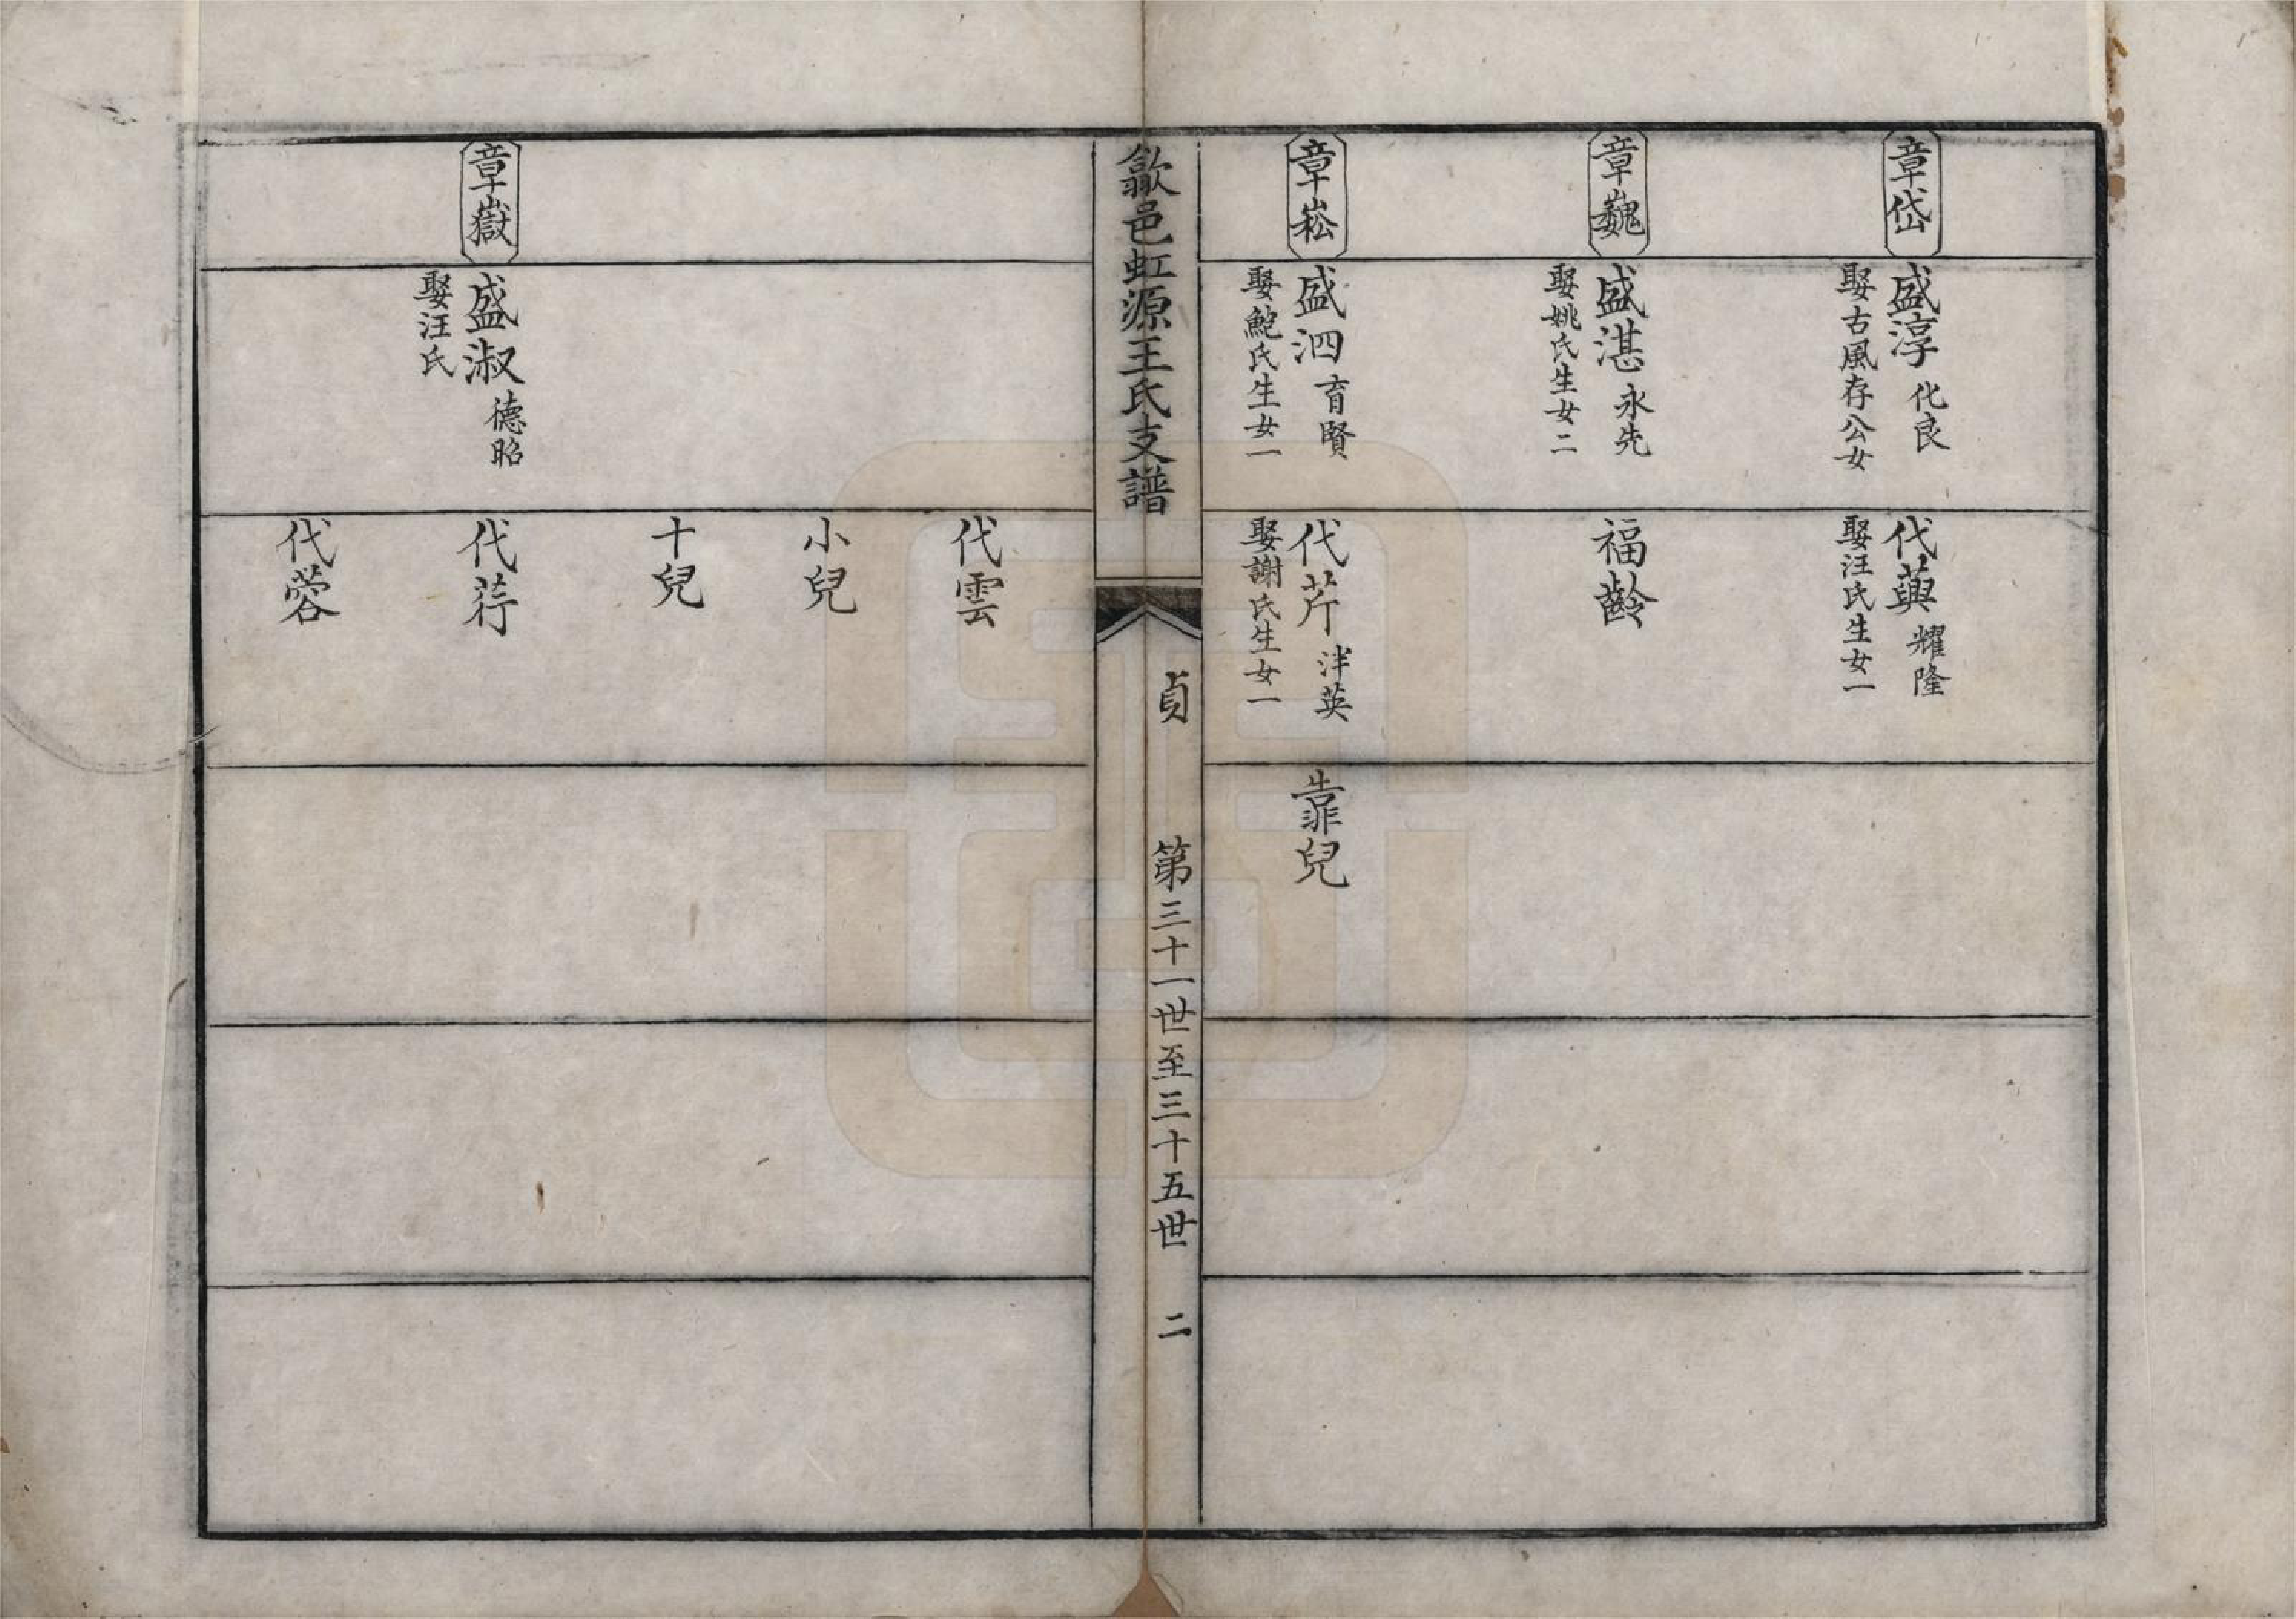 章岱
盛淳 化良
娶古風存公女
代藇 耀隆
娶汪氏生女一
章巍
盛湛 永先
娶姚氏生女二
福齡
章崧
盛泗 育賢
娶鮑氏生女一
代芹 泮英
娶謝氏生女一
靠兒
歙邑虹源王氏支譜
貞
第三十一世至三十五世
二
代雲
小兒
十兒
章嶽
盛淑 德昭
娶汪氏
代荇
代蓉